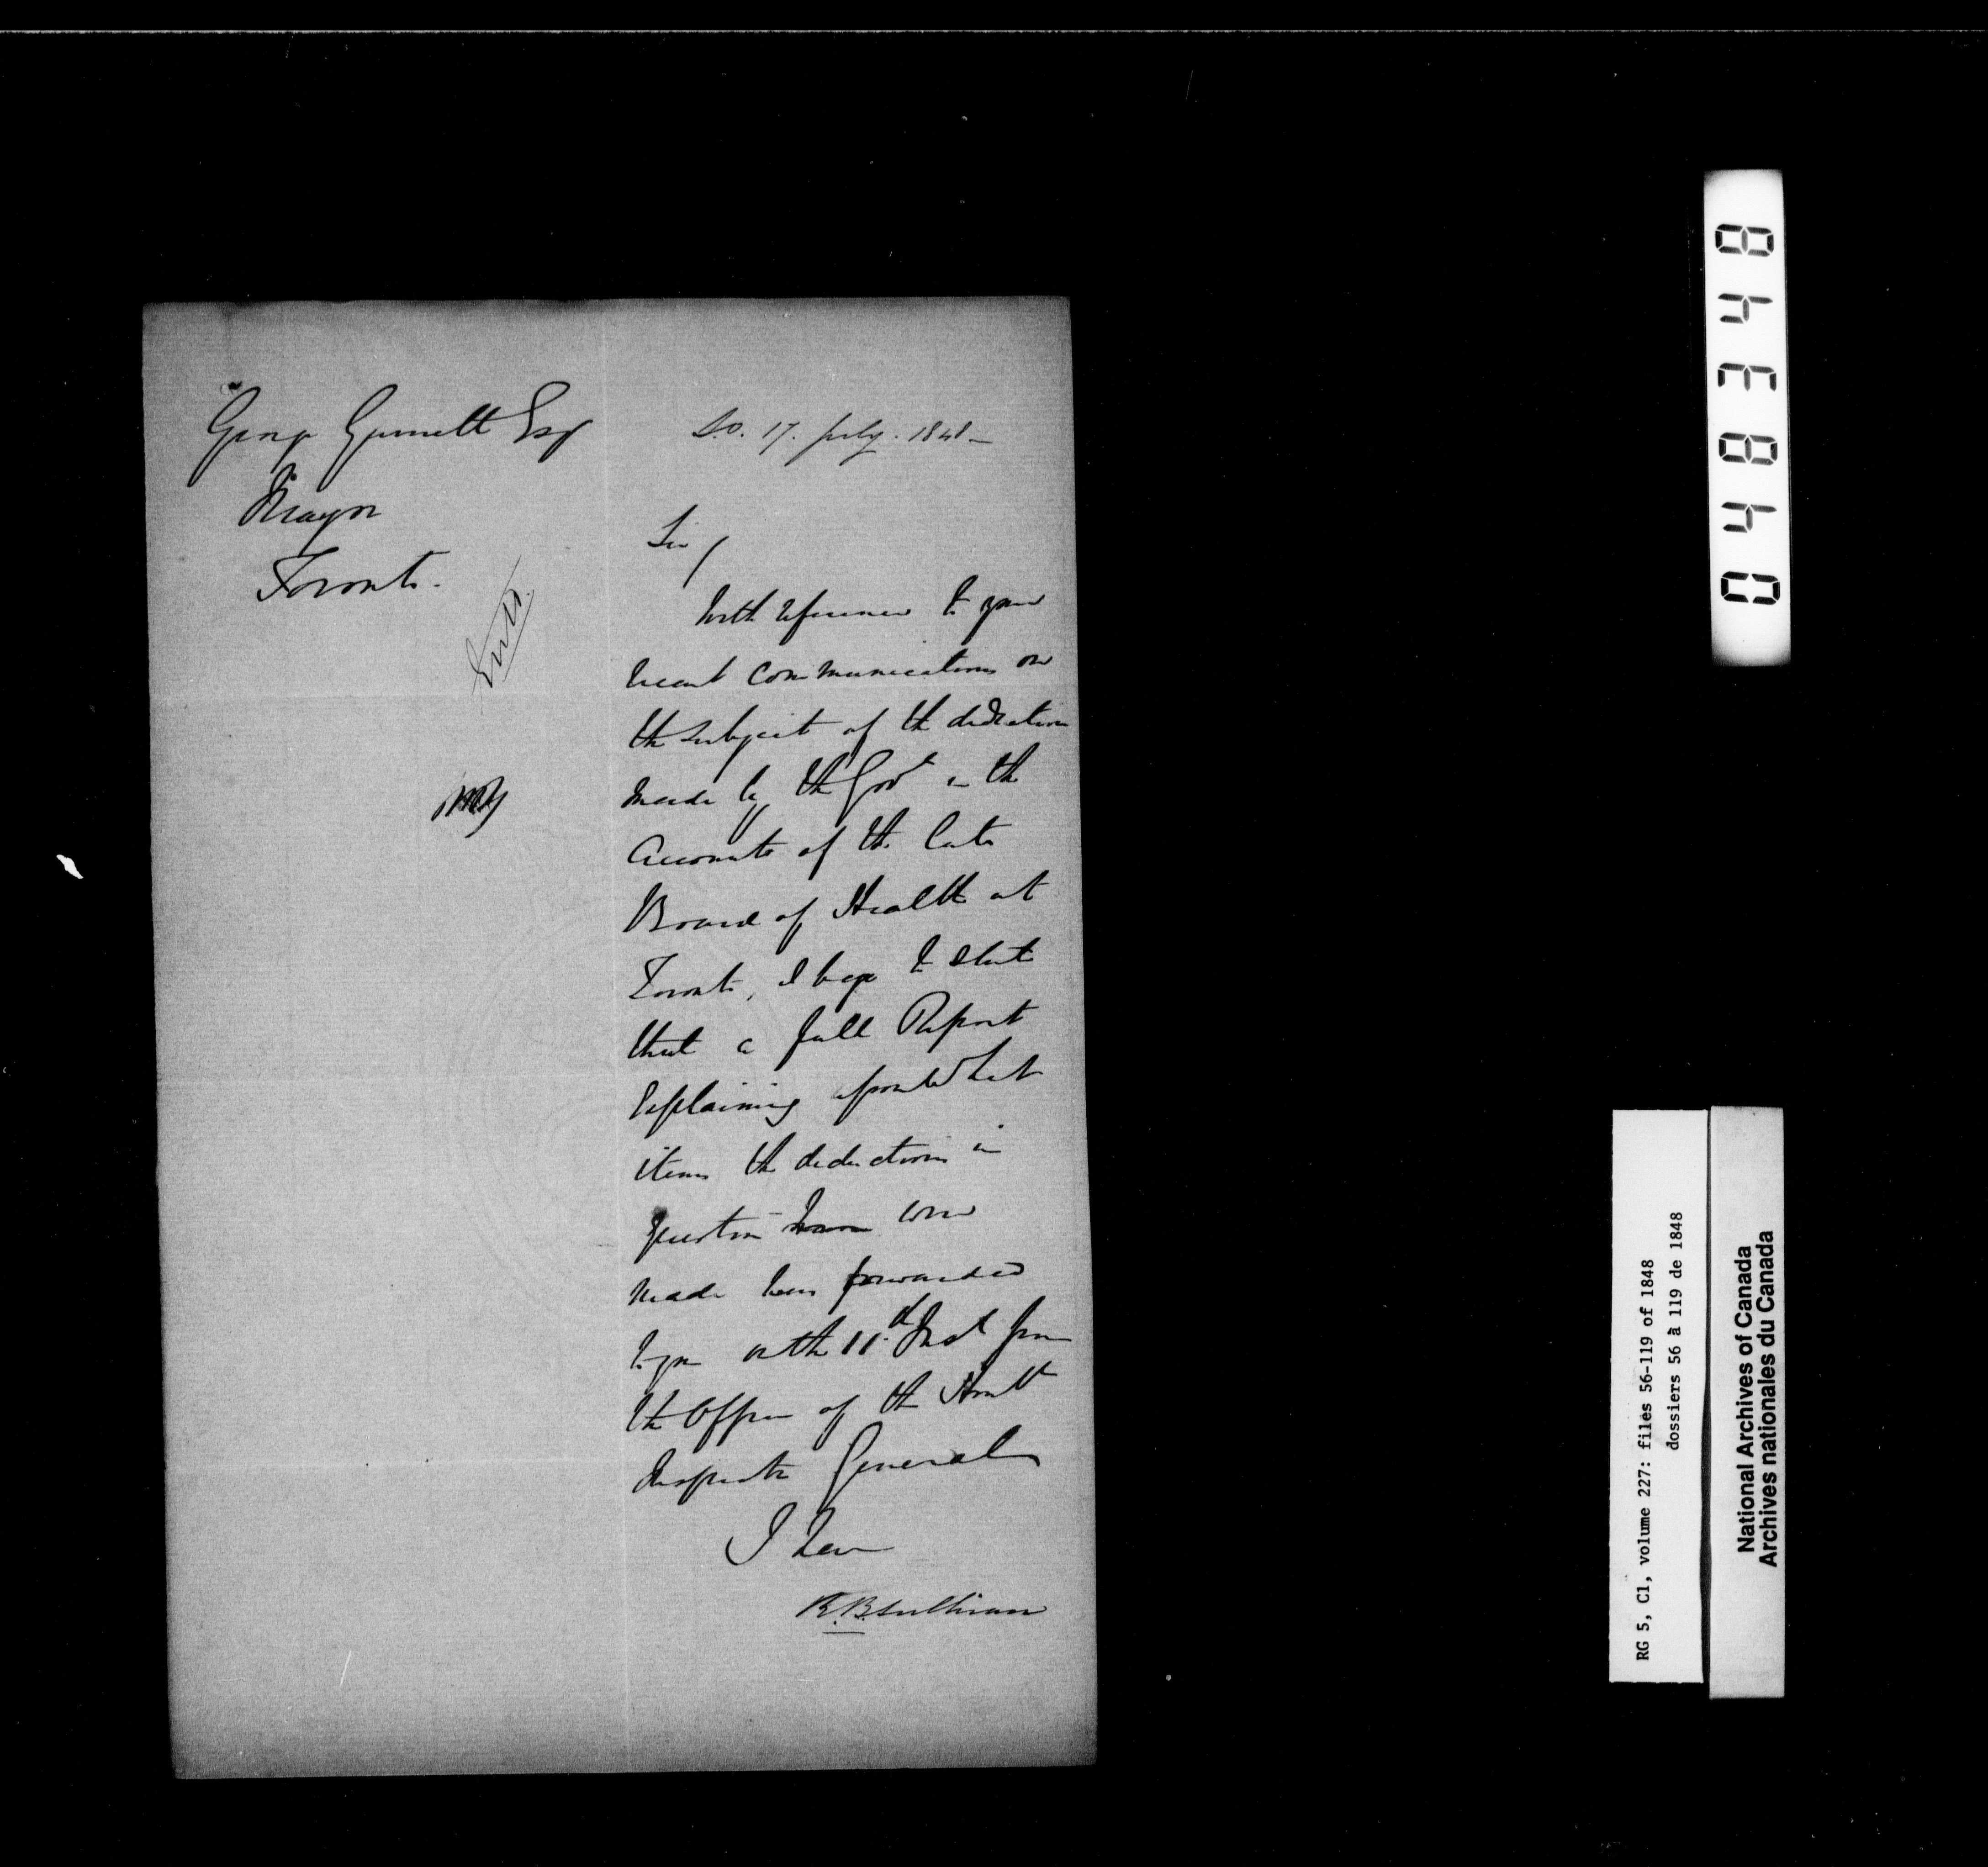 George Gurnett Esq
Mayor
Toronto.
S.O. 17. July. 1848 -
Sir /
With reference to your
recent communications on
the subject of the deduction
made by the Govt in the
accounts of the late
Board of Health at
Toronto, I beg to state
that a full Report
explaining upon what
items the deductions in
question were
made has forwarded
to you on the 11.th Inst from
the Office of the Honble
Inspector General
I have
R.B. Sullivan
048348
RG 5, C1, volume 227: files 56-119 of 1848
dossiers 56 à 119 de 1848
National Archives of Canada
Archives nationales du Canada